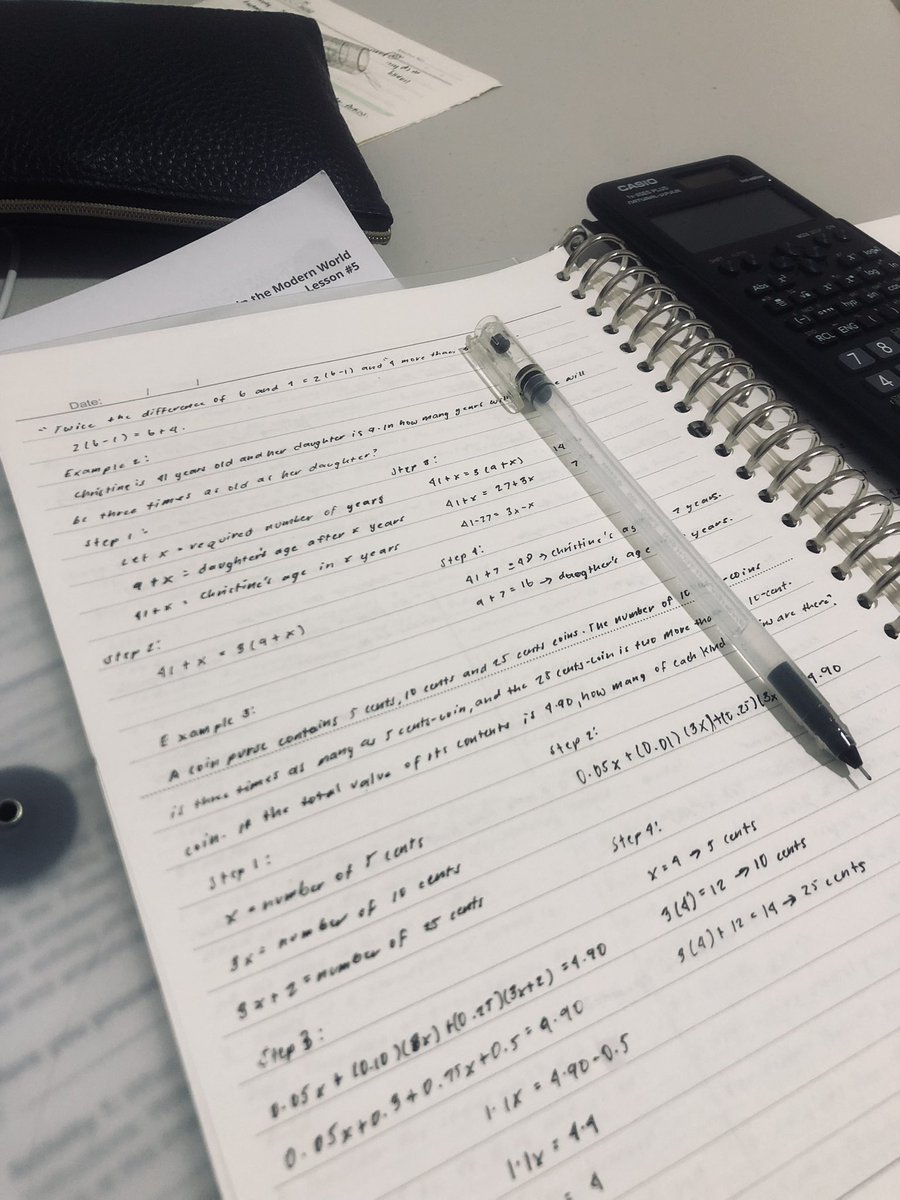 CASIO
NATURAL-V.P.A.M.
Abs
RCL ENG
7 8
4
in the Modern World
Lesson #5
Date: / /
"Twice the difference of b and 1 = 2(b-1) and "4 more than
2(b-1) = b+4.
Example 2:
Christine is 41 years old and her daughter is 9. In how many years will will
be three times as old as her daughter?
Step 1:
Let x = required number of years
9+x = daughter's age after x years
41+x = Christine's age in x years
Step 2:
41+x = 3(9+x)
Step 3:
41+x = 3(9+x)
41+x = 27+3x
41-27 = 3x-x
14
7
Step 4:
41+7 = 48 → christine's ag 7 years.
9+7 = 16 → daugther's age years.
Example 3:
A coin purse contains 5 cents, 10 cents and 25 cents coins. The number of 10 -coins
is three times as many as 5 cents-coin, and the 25 cents-coin is two more tha 10-cent.
coin. If the total value of its contents is 4.90, how many of each kind are there?
Step 1:
x = number of 5 cents
3x = number of 10 cents
3x+2 = number of 25 cents
Step 2:
0.05x + (0.01)(3x)+(0.25)(3x 4.90
Step 3:
0.05x + (0.10)(3x) + (0.25)(3x+2) = 4.90
0.05x+0.3+0.75x+0.5 = 4.90
1.1x = 4.90-0.5
1.1x = 4.4
= 4
Step 4:
x = 4 → 5 cents
3(4) = 12 → 10 cents
3(4)+12 = 14 → 25 cents